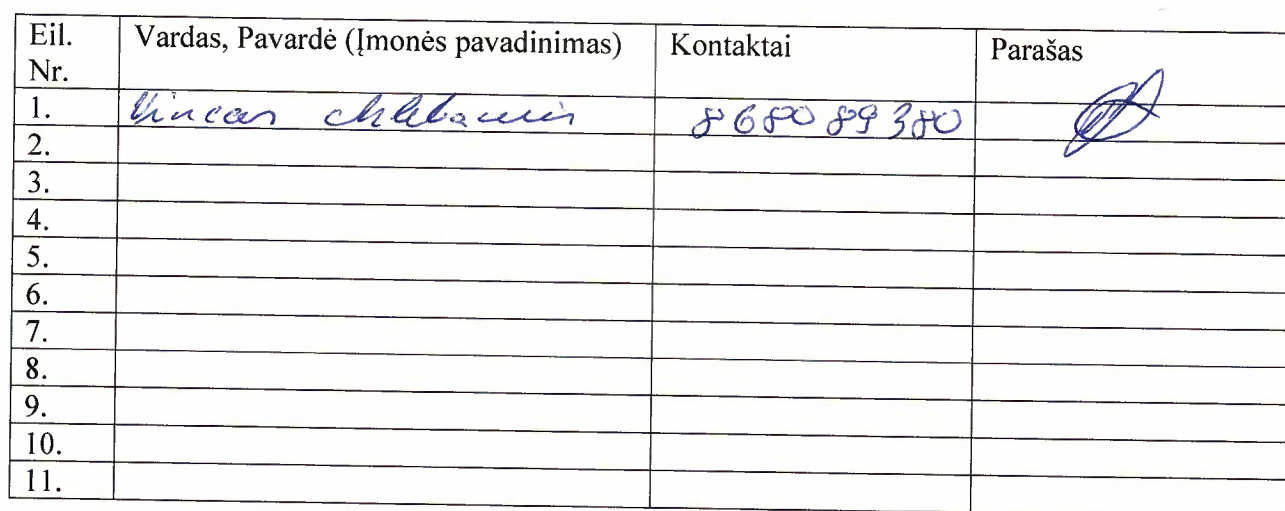 Eil. Nr. Vardas, Pavardė (Įmonės pavadinimas) Kontaktai Parašas
1. Vincas 868089380
2.
3.
4.
5.
6.
7.
8.
9.
10.
11.